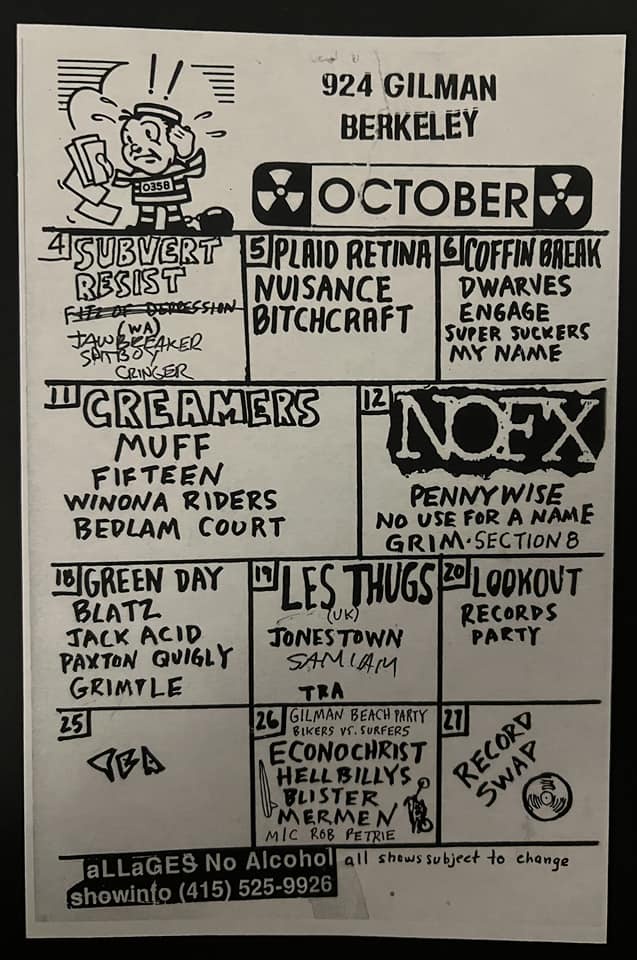 !!
0358
924 GILMAN
BERKELEY
OCTOBER
4
SUBVERT
RESIST
FITZ OF DEPRESSION
(WA)
JAWBREAKER
SPITBOY
CRINGER
5
PLAID RETINA
NUISANCE
BITCHCRAFT
6
COFFIN BREAK
DWARVES
ENGAGE
SUPER SUCKERS
MY NAME
11
CREAMERS
MUFF
FIFTEEN
WINONA RIDERS
BEDLAM COURT
12
NOFX
PENNYWISE
NO USE FOR A NAME
GRIM · SECTION 8
18
GREEN DAY
BLATZ
JACK ACID
PAXTON QUIGLY
GRIMPLE
19
LES THUGS
(UK)
JONESTOWN
SAMIAM
TBA
20
LOOKOUT
RECORDS
PARTY
25
TBA
26
GILMAN BEACH PARTY
BIKERS VS. SURFERS
ECONOCHRIST
HELLBILLYS
BLISTER
MERMEN
M/C ROB PETRIE
27
RECORD
SWAP
aLLaGES No Alcohol
showinfo (415) 525-9926
all shows subject to change